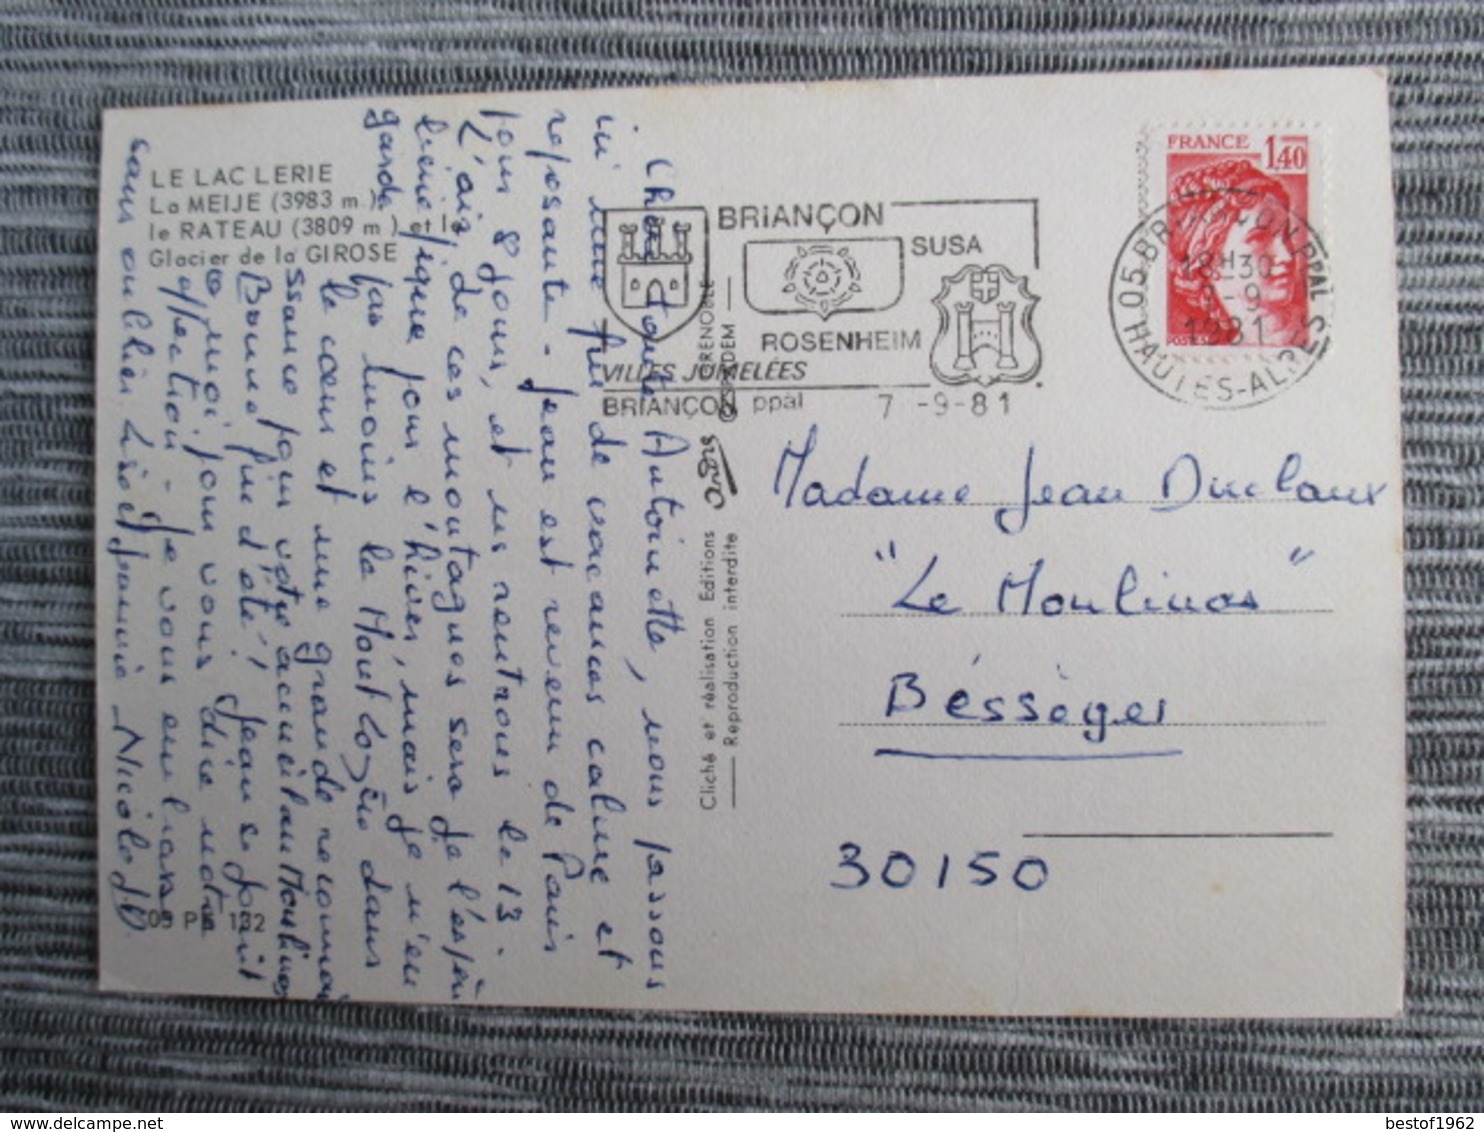 LE LAC LERIE
La MEIJE (3983 m.),
le RATEAU (3809 m.) et le
Glacier de la GIROSE
BRIANÇON
SUSA
ROSENHEIM
VILLES JUMELÉES
BRIANÇON ppal 7 -9-81
FRANCE
1,40
POSTES
05 BRIANÇON PPAL
18H30
7-9
1981
HAUTES-ALPES
Chère Antoinette, nous passons
ici une fin de vacances calme et
reposante - Jean est revenu de Paris
pour 8 jours, et nous rentrons le 13.
L'air de ces montagnes sera je l'espère
bénéfique pour l'hiver, mais je n'en
garde pas moins le Mont Lozère dans
le cœur et une grande reconnai
ssance pour votre accueil au Moulinas
Bonne fin d'été, Jean se joint
à moi pour vous dire notre
affection - Je vous embrasse
sans oublier Nicole J.D
Cliché et réalisation Editions André
GRENOBLE
Reproduction interdite
Madame Jean Duclaux
"Le Moulinas"
Bésséges
30150
05 PM 132
bestof1962